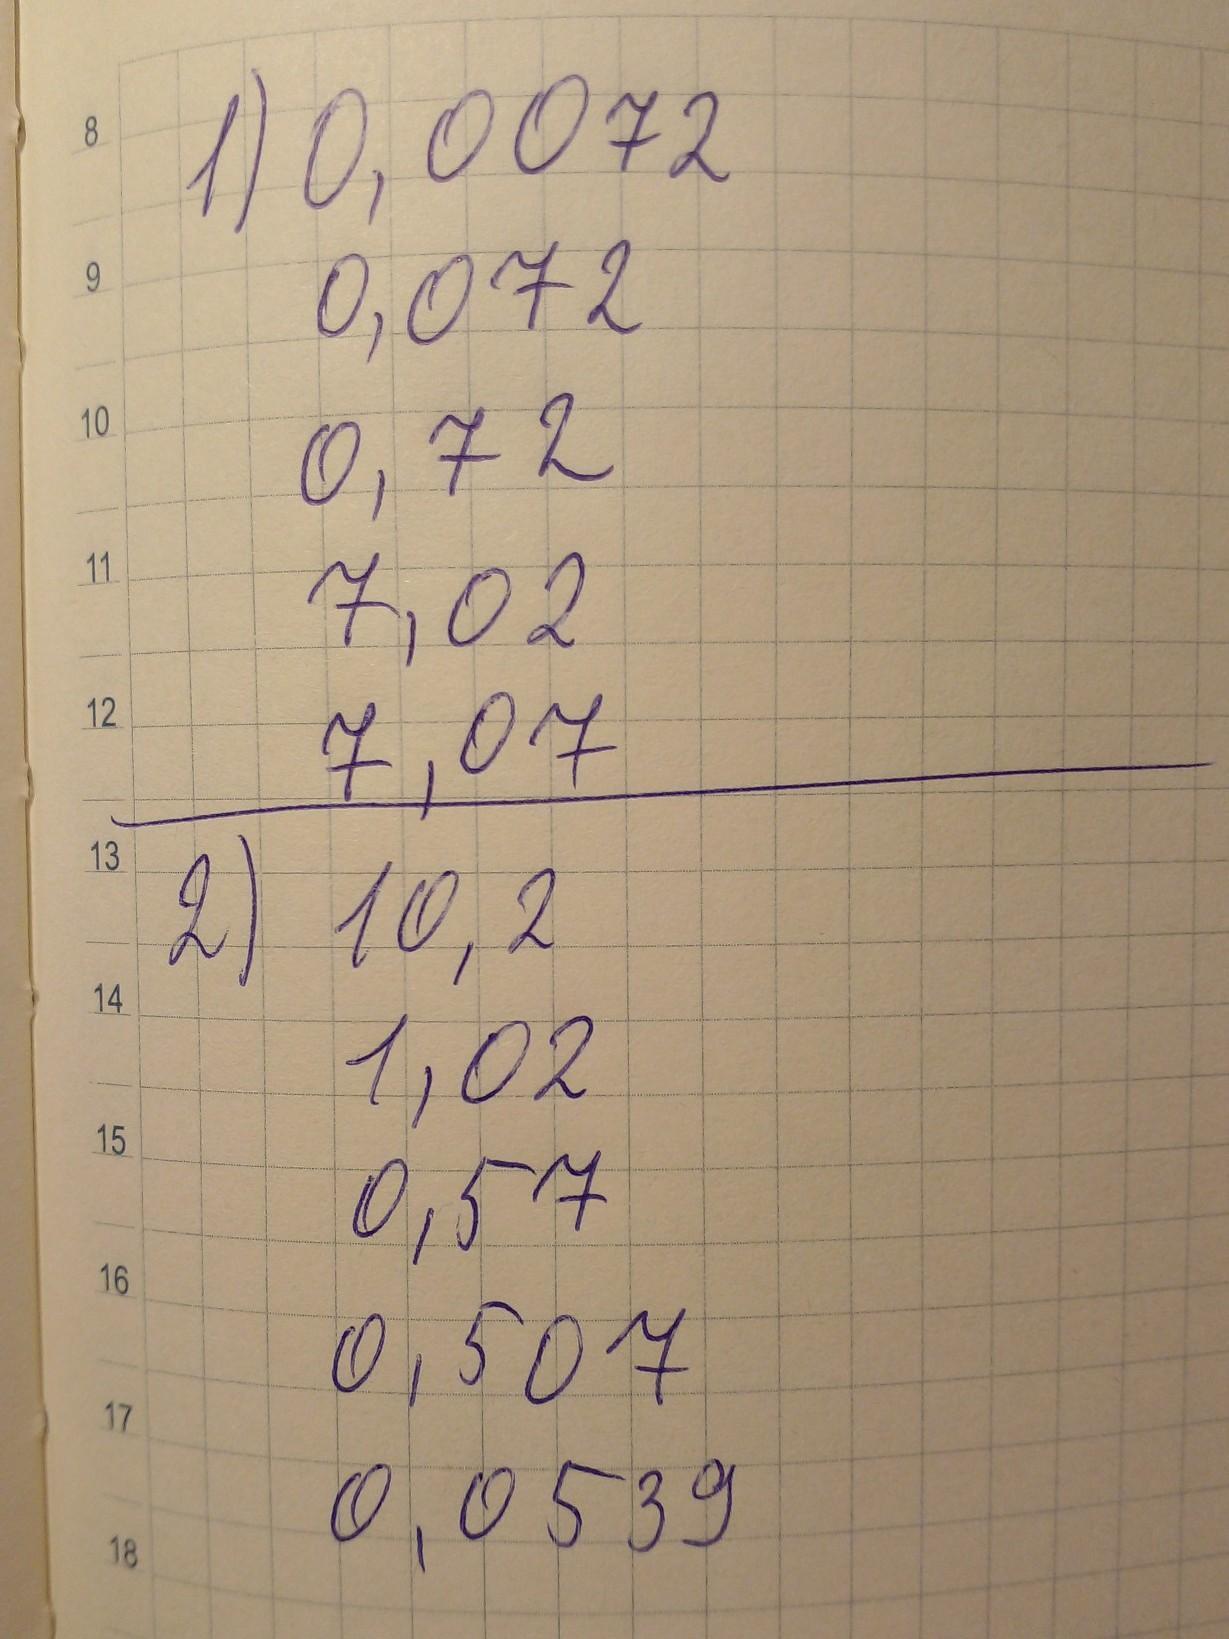 8
1) 0,0072
9
0,072
10
0,72
11
7,02
12
7,07
13
2) 10,2
14
1,02
15
0,57
16
0,507
17
0,0539
18